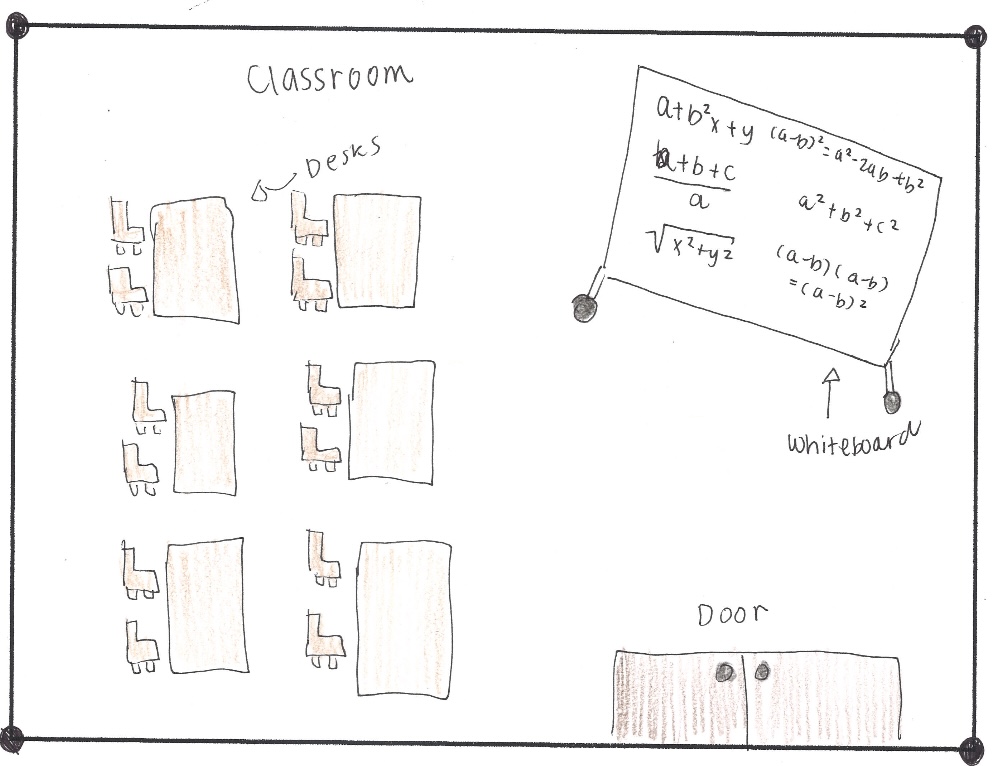 Classroom
Desks
a+b²x+y
(a-b)²=a²-2ab+b²
a+b+c
a
a²+b²+c²
√x²+y²
(a-b)(a-b)
=(a-b)²
Whiteboard
Door